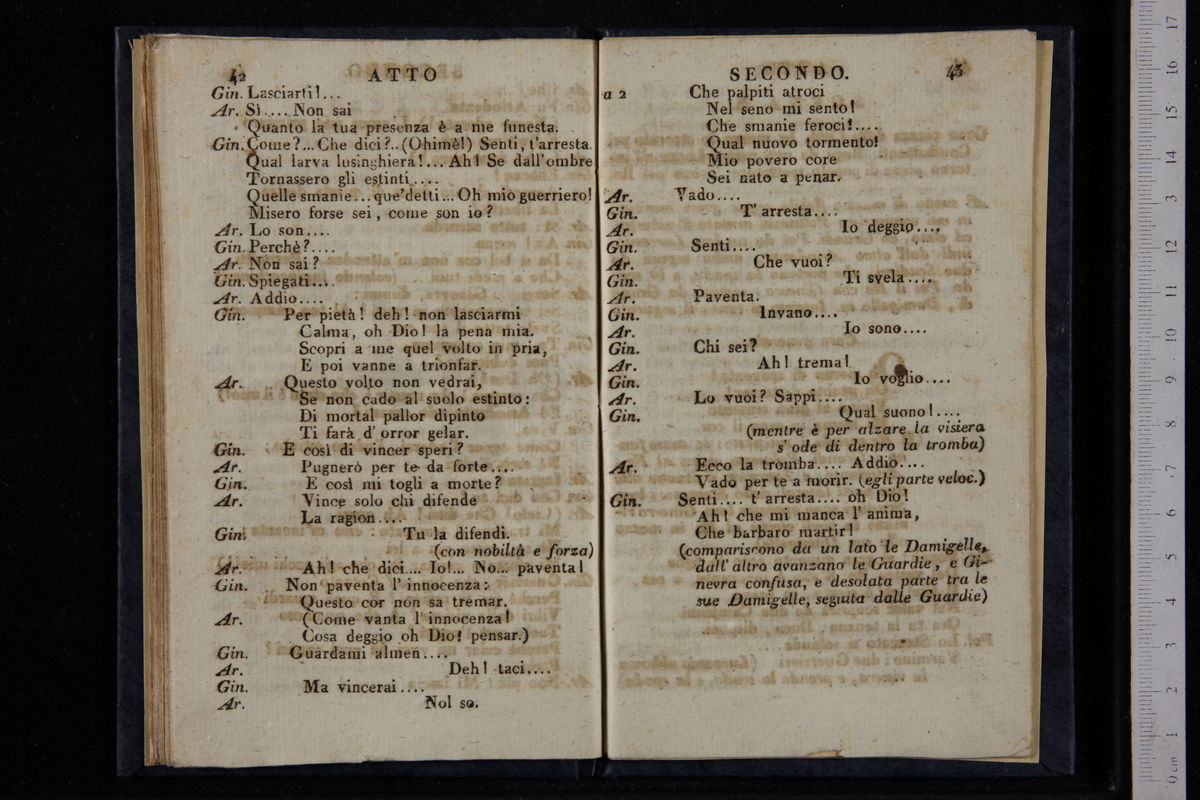 42 ATTO
Gin. Lasciarti!...
Ar. Sì.... Non sai
Quanto la tua presenza è a me funesta.
Gin. Come?... Che dici?.. (Ohimè!) Senti, t'arresta.
Qual larva lusinghiera!... Ah! Se dall'ombre
Tornassero gli estinti....
Quelle smanie... que'detti... Oh mio guerriero!
Misero forse sei, come son io?
Ar. Lo son....
Gin. Perchè?....
Ar. Non sai?
Gin. Spiegati....
Ar. Addio....
Gin. Per pietà! deh! non lasciarmi
Calma, oh Dio! la pena mia.
Scopri a me quel volto in pria,
E poi vanne a trionfar.
Ar. Questo volto non vedrai,
Se non cado al suolo estinto:
Di mortal pallor dipinto
Ti farà d'orror gelar.
Gin. E così di vincer speri?
Ar. Pugnerò per te da forte....
Gin. E così mi togli a morte?
Ar. Vince solo chi difende
La ragion....
Gin. Tu la difendi.
(con nobiltà e forza)
Ar. Ah! che dici.... Io!... No... paventa!
Gin. Non paventa l'innocenza:
Questo cor non sa tremar.
Ar. (Come vanta l'innocenza!
Cosa deggio oh Dio! pensar.)
Gin. Guardami almen....
Ar. Deh! taci....
Gin. Ma vincerai....
Ar. Nol so.
SECONDO. 43
a 2 Che palpiti atroci
Nel seno mi sento!
Che smanie feroci!....
Qual nuovo tormento!
Mio povero core
Sei nato a penar.
Ar. Vado....
Gin. T'arresta....
Ar. Io deggio....
Gin. Senti....
Ar. Che vuoi?
Gin. Ti svela....
Ar. Paventa.
Gin. Invano....
Ar. Io sono....
Gin. Chi sei?
Ar. Ah! trema!
Gin. Io voglio....
Ar. Lo vuoi? Sappi....
Gin. Qual suono!....
(mentre è per alzare la visiera
s'ode di dentro la tromba)
Ar. Ecco la tromba.... Addio....
Vado per te a morir. (egli parte veloc.)
Gin. Senti.... t'arresta.... oh Dio!
Ah! che mi manca l'anima,
Che barbaro martir!
(compariscono da un lato le Damigelle,
dall'altro avanzano le Guardie, e Gi-
nevra confusa, e desolata parte tra le
sue Damigelle, seguita dalle Guardie)
0 cm 1 2 3 4 5 6 7 8 9 10 11 12 13 14 15 16 17